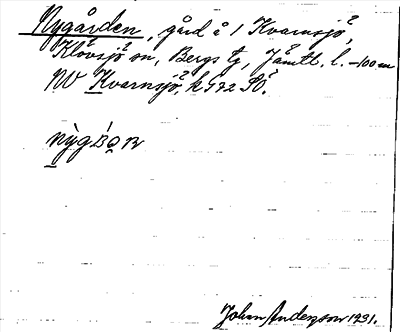 Nygården, gård å 1 Kvarnsjö,
Klövsjö sn, Bergs tg, Jämtl. l. –100 m
NV Kvarnsjö, k 572 SÖ.
Johan Anderson 1931.